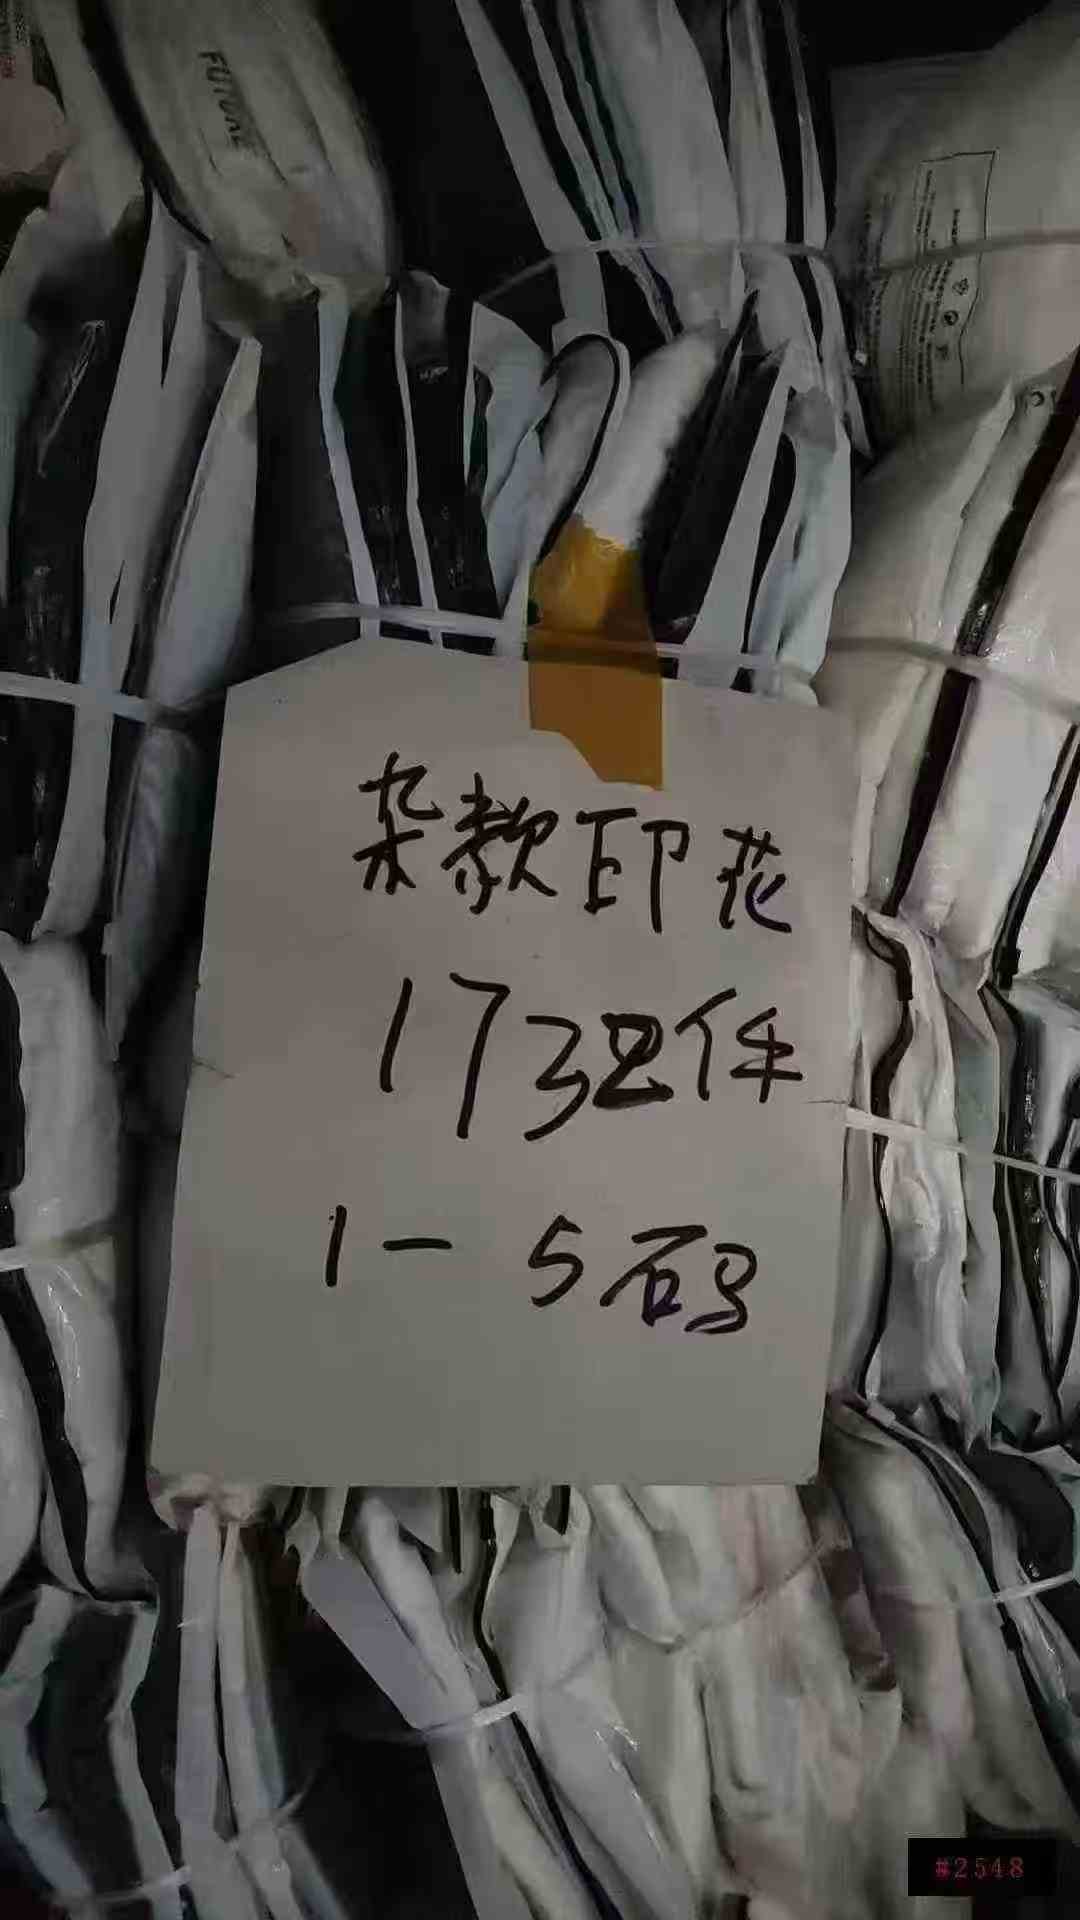 FUTURE
杂款印花
1732件
1-5码
#2548